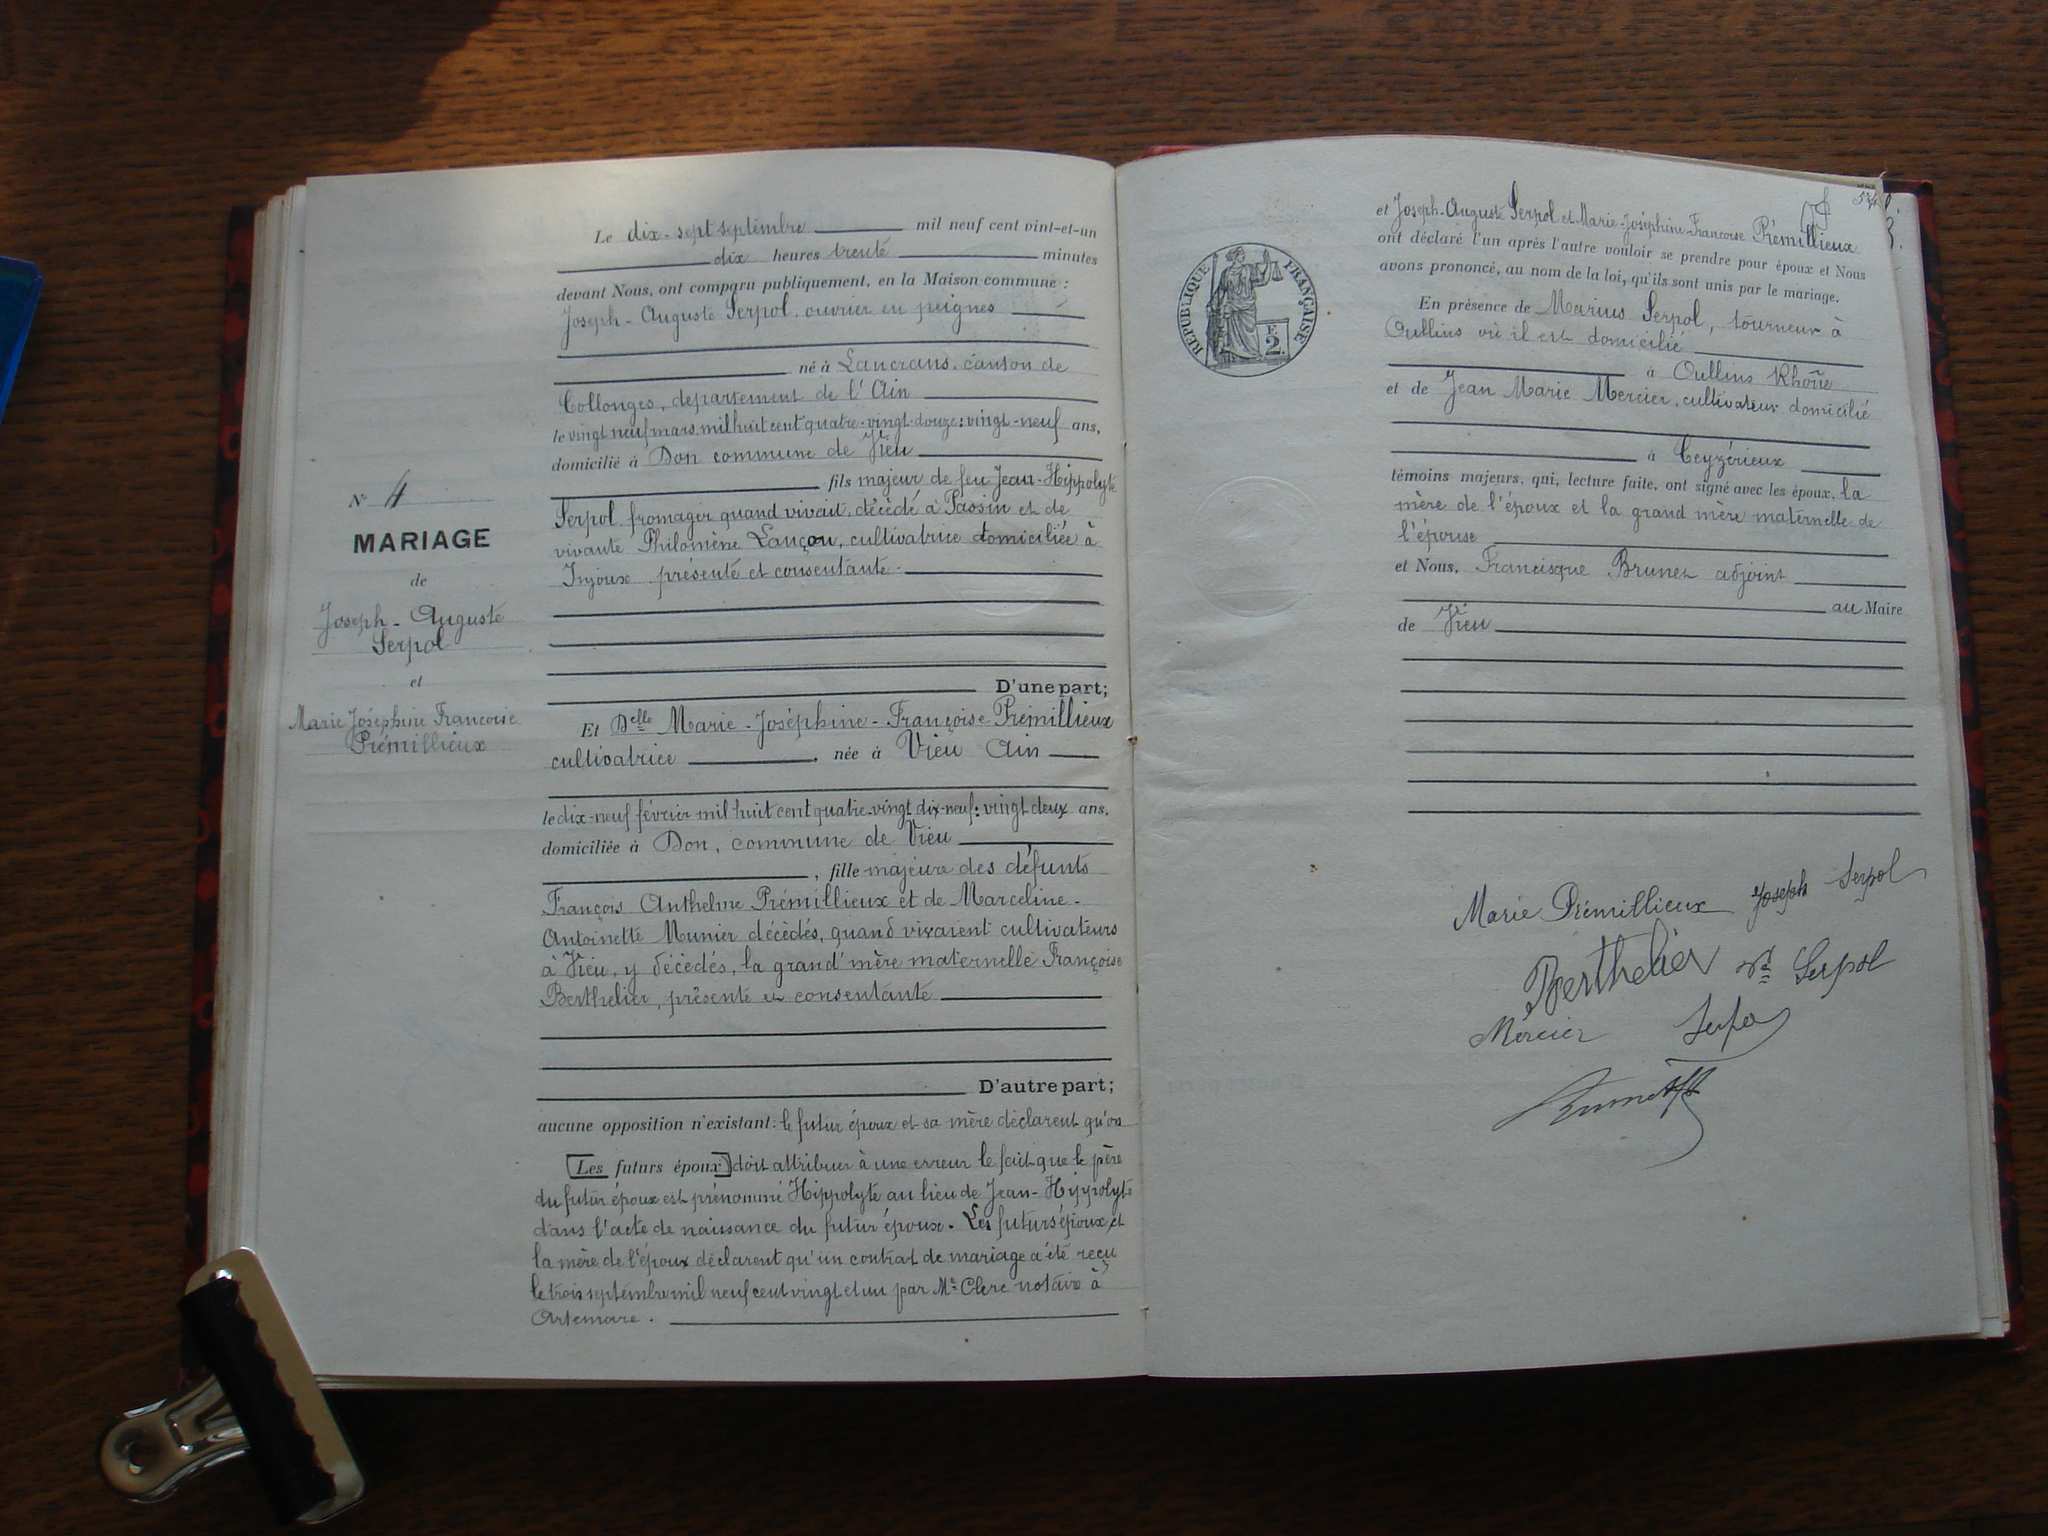 N° 4
MARIAGE
de
Joseph-Auguste
Serpol
et
Marie Joséphine Francoise
Prémillieux
Le dix-sept septembre mil neuf cent vint-et-un
dix heures trente minutes
devant Nous, ont comparu publiquement, en la Maison commune :
Joseph-Auguste Serpol, ouvrier en peignes
né à Lancrans, canton de
Collonges, departement de l'Ain
le vingt neuf mars mil huit cent quatre-vingt-douze : vingt-neuf ans,
domicilié à Don commune de Vieu
fils majeur de feu Jean-Hippolyte
Serpol fromager quand vivait, décédé à Passin et de
vivante Philomène Lançon, cultivatrice domiciliée à
Injoux présente et consentante.
D'une part;
Et Delle Marie-Joséphine-Françoise Prémillieux
cultivatrice, née à Vieu Ain
le dix-neuf février mil huit cent quatre-vingt dix-neuf : vingt deux ans,
domiciliée à Don, commune de Vieu
, fille majeure des défunts
François Anthelme Prémillieux et de Marceline-
Antoinette Munier décédés, quand vivaient cultivateurs
à Vieu, y décédés, la grand'mère maternelle Françoise
Berthelier, présente et consentante
D'autre part;
aucune opposition n'existant : le futur époux et sa mère déclarent qu'on
[Les futurs époux] doit attribuer à une erreur le fait que le père
du futur époux est prénommé Hippolyte au lieu de Jean-Hippolyte
dans l'acte de naissance du futur époux. Les futurs époux et
la mère de l'époux déclarent qu'un contrat de mariage a été reçu
le trois septembre mil neuf cent vingt et un par Me Clerc notaire à
Artemare.
RÉPUBLIQUE FRANÇAISE
F. 2
et Joseph-Auguste Serpol et Marie-Joséphine-Francoise Prémillieux
ont déclaré l'un après l'autre vouloir se prendre pour époux et Nous
avons prononcé, au nom de la loi, qu'ils sont unis par le mariage.
En présence de Marius Serpol, tourneur à
Oullins où il est domicilié
à Oullins Rhône
et de Jean Marie Mercier, cultivateur domicilié
à Ceyzérieux
témoins majeurs, qui, lecture faite, ont signé avec les époux, la
mère de l'époux et la grand mère maternelle de
l'épouse
et Nous, Francisque Brunet adjoint
au Maire
de Vieu
Marie Prémillieux Joseph Serpol
Berthelier Ve Serpol
Mercier Serpol